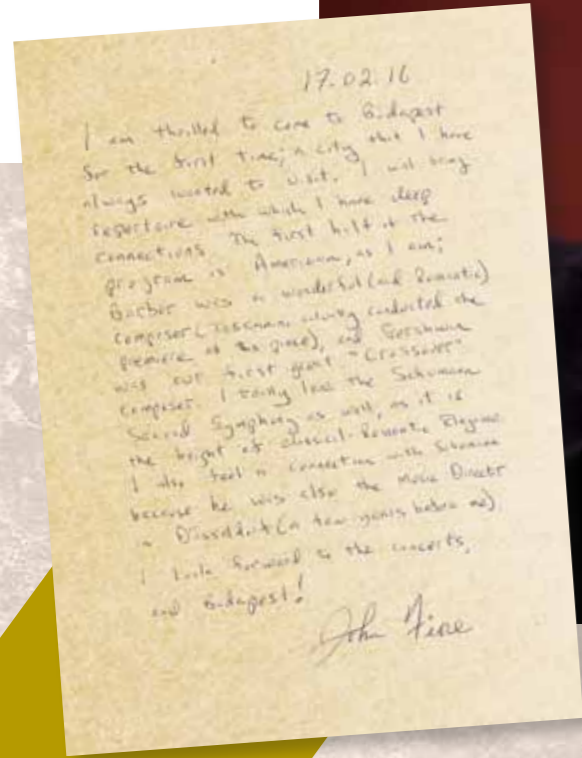 17.02.16
I am thrilled to come to Budapest
for the first time; a city that I have
always wanted to visit. I will bring
repertoire with which I have deep
connections. The first half of the
program is American, as I am;
Barber was a wonderful (and Romantic)
composer (Toscanini conducted the
premiere of the piece), and Gershwin
was our first great "Crossover"
composer. I truly love the Schumann
Second Symphony as well, as it is
the height of classical-Romantic
I also feel a connection with Schumann
because he was also the Music Director
in Düsseldorf (a few years before me).
I look forward to the concerts,
and Budapest!
John Fiore